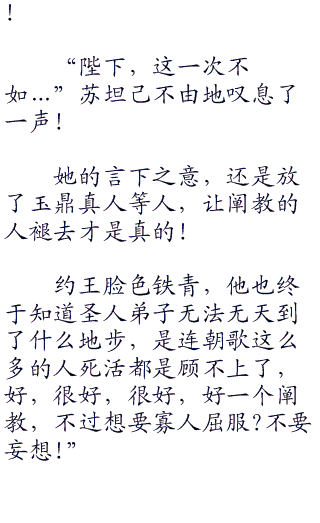 ！
“陛下，这一次不
如…”苏坦己不由地叹息了
一声！
她的言下之意，还是放
了玉鼎真人等人，让阐教的
人褪去才是真的！
约王脸色铁青，他也终
于知道圣人弟子无法无天到
了什么地步，是连朝歌这么
多的人死活都是顾不上了，
好，很好，很好，好一个阐
教，不过想要寡人屈服?不要
妄想！”